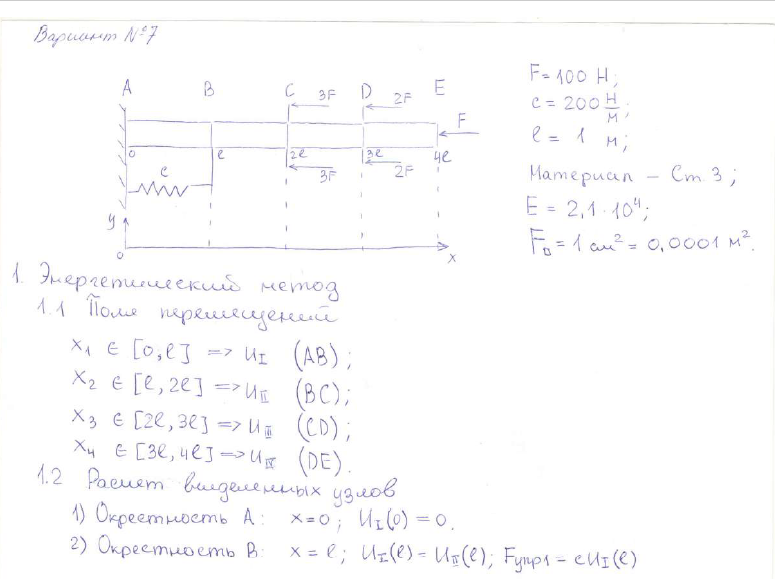 Вариант №7
A B C 3F D 2F E
F
0 l 2l 3l 4l
c 3F 2F
y
0 x
F = 100 Н;
c = 200 Н/м;
l = 1 м;
Материал – Ст. 3;
E = 2,1 · 10⁴;
F₀ = 1 см² = 0,0001 м².
1. Энергетический метод
1.1 Поля перемещений
x₁ ∈ [0, l] => u_I (AB);
x₂ ∈ [l, 2l] => u_II (BC);
x₃ ∈ [2l, 3l] => u_II (CD);
x₄ ∈ [3l, 4l] => u_IV (DE).
1.2 Расчет выделенных узлов
1) Окрестность A: x = 0; u_I(0) = 0.
2) Окрестность B: x = l; u_I(l) = u_II(l); Fупр1 = cu_I(l)